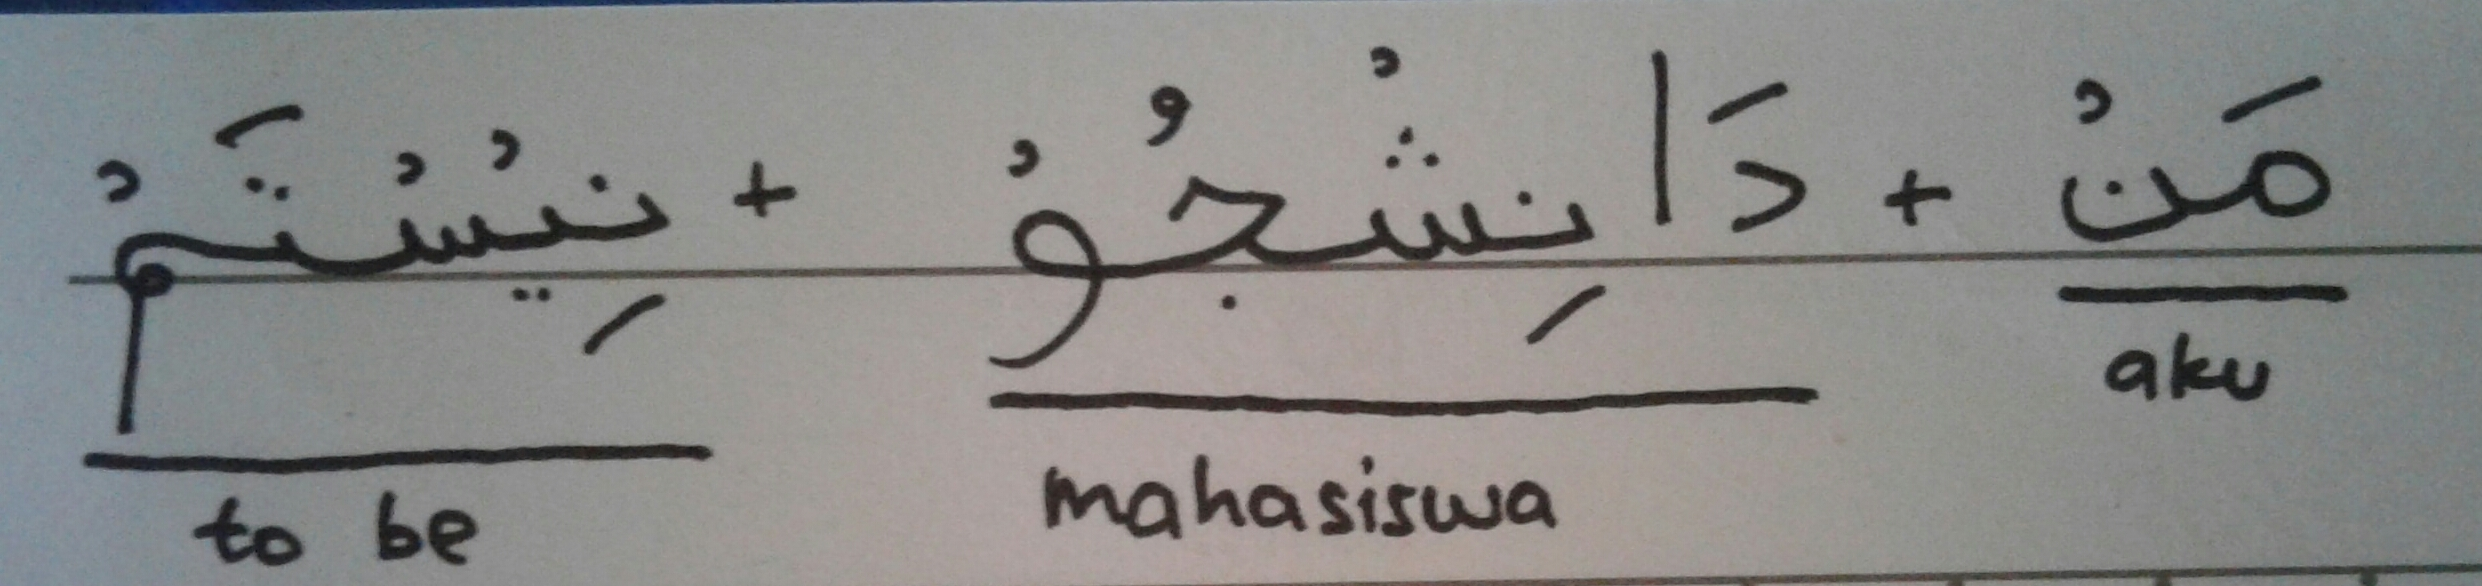 مَنْ + دَانِشْجُوْ + نِيْسْتَمْ
aku
mahasiswa
to be